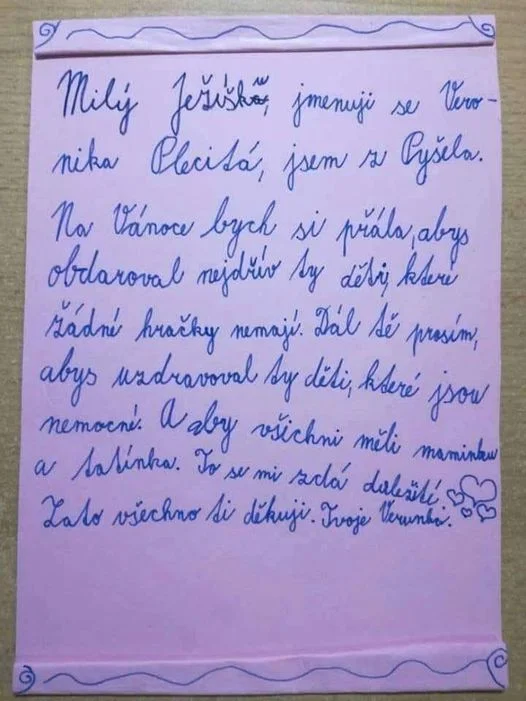 Milý Ježíšku, jmenuji se Vero-
nika Plecitá, jsem z Pyšela.
Na Vánoce bych si přála, abys
obdaroval nejdřív ty děti, které
žádné hračky nemají. Dál tě prosím,
abys uzdravoval ty děti, které jsou
nemocné. A aby všichni měli maminku
a tatínka. To se mi zdá duležité
Zato všechno ti děkuji. Tvoje Verunka.